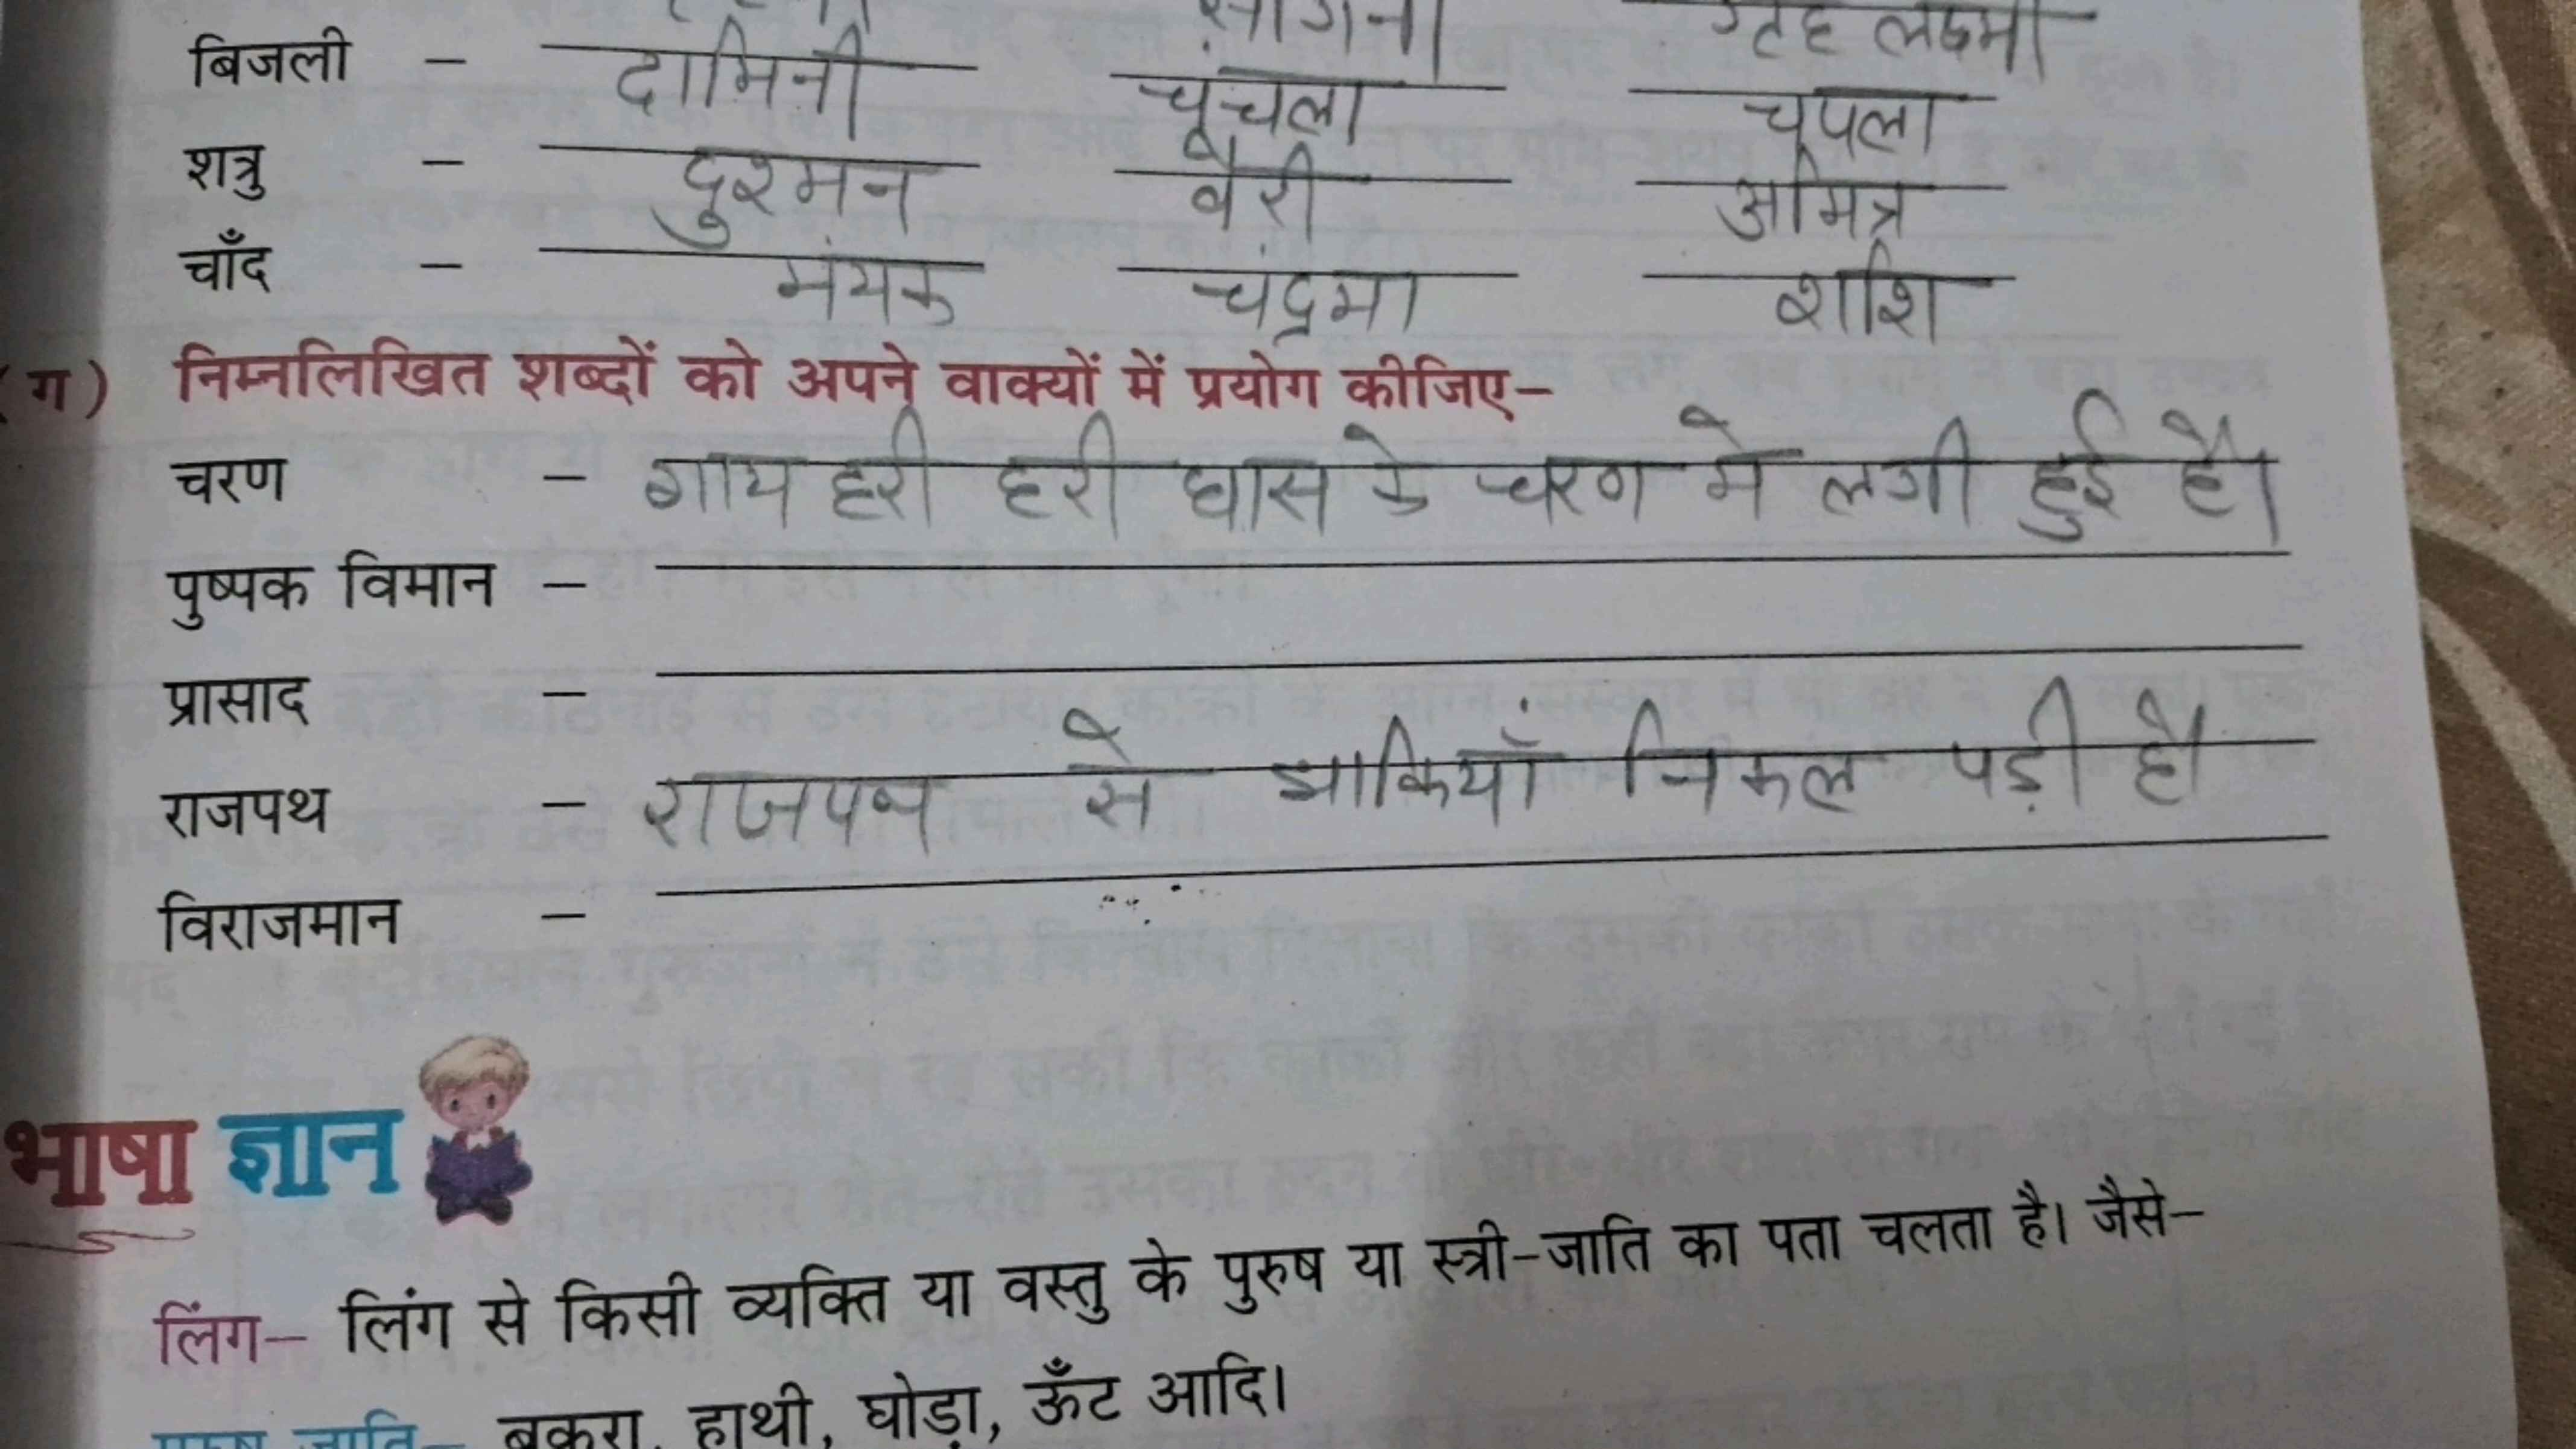 गृह लक्ष्मी
बिजली - दामिनी चंचला चपला
शत्रु - दुश्मन वैरी अमित्र
चाँद - मंयक चंद्रमा शशि
(ग) निम्नलिखित शब्दों को अपने वाक्यों में प्रयोग कीजिए-
चरण - गाय हरी हरी घास के चरण मे लगी हुई है।
पुष्पक विमान -
प्रासाद -
राजपथ - राजपथ से झाकियाँ निकल पड़ी है।
विराजमान -
भाषा ज्ञान
लिंग- लिंग से किसी व्यक्ति या वस्तु के पुरुष या स्त्री-जाति का पता चलता है। जैसे-
पुरुष जाति- बकरा, हाथी, घोड़ा, ऊँट आदि।